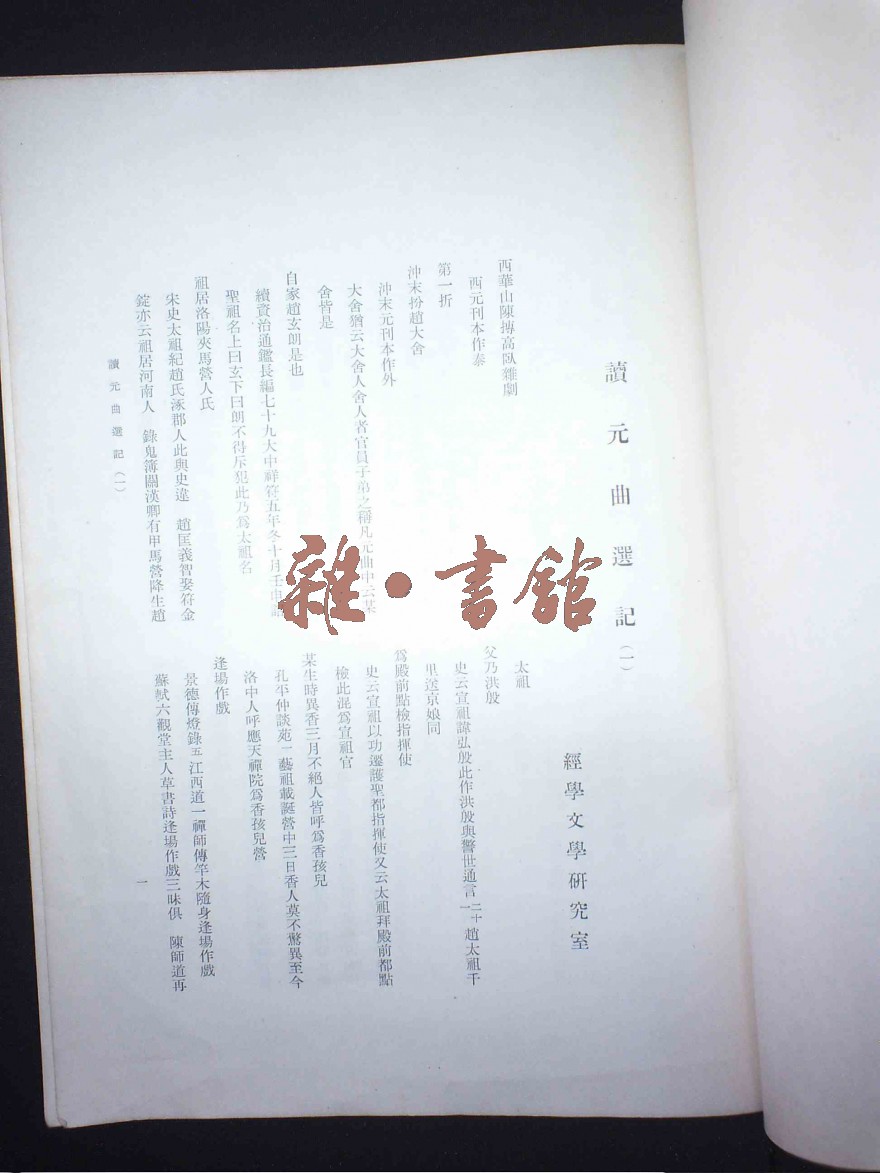 讀元曲選記(一)
經學文學硏究室
西華山陳摶高臥雜劇
西元刊本作泰
第一折
沖末扮趙大舍
沖末元刊本作外
大舍猶云大舍人舍人者官員子弟之稱凡元曲中云某
舍皆是
自家趙玄朗是也
續資治通鑑長編七十九大中祥符五年冬十月壬申詔
聖祖名上曰玄下曰朗不得斥犯此乃爲太祖名
祖居洛陽夾馬營人氏
宋史太祖紀趙氏涿郡人此與史違 趙匡義智娶符金
錠亦云祖居河南人 錄鬼簿關漢卿有甲馬營降生趙
太祖
父乃洪殷
史云宣祖諱弘殷此作洪殷與警世通言二十一趙太祖千
里送京娘同
爲殿前點檢指揮使
史云宣祖以功遷護聖都指揮使又云太祖拜殿前都點
檢此混爲宣祖官
某生時異香三月不絕人皆呼爲香孩兒
孔平仲談苑一藝祖載誕營中三日香人莫不驚異至今
洛中人呼應天禪院爲香孩兒營
逢場作戲
景德傳燈錄五江西道一禪師傳竿木隨身逢場作戲
蘇軾六觀堂主人草書詩逢場作戲三昧俱 陳師道再
讀元曲選記(一)
一
雜·書館